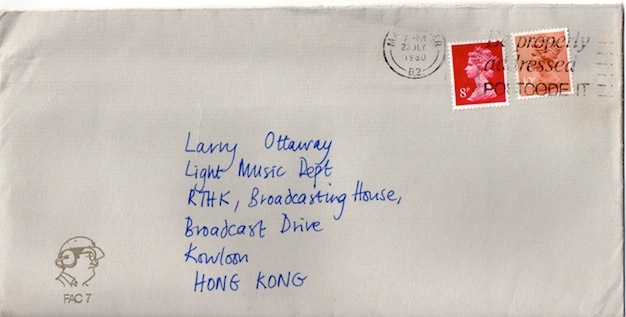 2 - PM
23 JLY
1980
B2
Be properly
addressed
POSTCODE IT
8P
Larry Ottaway
Light Music Dept
RTHK, Broadcasting House,
Broadcast Drive
Kowloon
HONG KONG
FAC 7